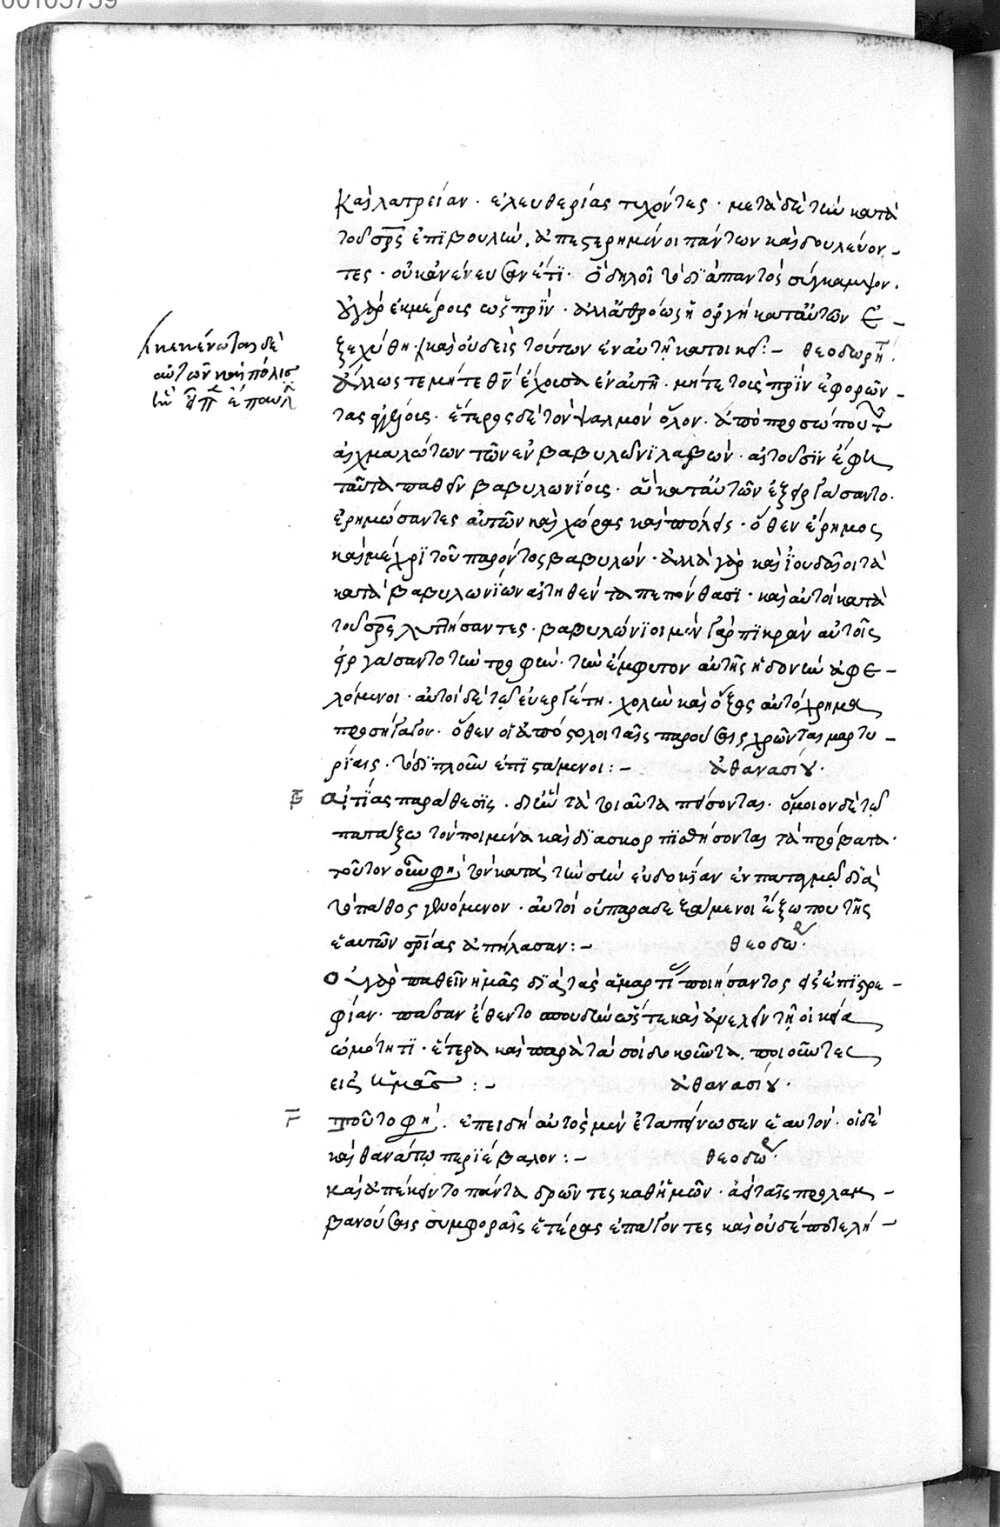 00103759
καὶ λατρείαν · ἐλευθερίας τυχόντες · μετὰ δὲ τὴν κατὰ
τοῦ σρς ἐπιβουλὴν, ἀπεστερημένοι πάντων καὶ δουλεύον -
τες · οὐκ ἀνένευσαν ἔτι · ὃ δηλοῖ τὸ διαπαντὸς σύγκαμψον ·
οὐ γὰρ ἐκ μέρους ὡς πρὶν · ἀλλ' ἀθρόως ἡ ὀργὴ κατ' αὐτῶν ἐ -
ξεχύθη · καὶ οὐδεὶς τούτων ἐν αὐτῇ κατοικεῖ : - θεοδωρήτ
κεκένωται δὲ
αὐτῶν καὶ ἡ πόλις
ἄλλως τε μήτε θν ἔχουσα ἐν αὐτῇ · μήτε τοὺς πρὶν ἐφορῶν -
τας ἀγγέλους · ἕτερος δὲ τὸν ψαλμὸν ὅλον · ἀπὸ προσώπου τ
αἰχμαλώτων τῶν ἐν βαβυλῶνι λαβὼν · αἰτοῦσιν ἔφη
ταῦτα παθεῖν βαβυλωνίους · ἃ κατ' αὐτῶν ἐξειργάσαντο ·
ἐρημώσαντες αὐτῶν καὶ χώρας καὶ πόλεις · ὅθεν ἔρημος
καὶ μέχρι τοῦ παρόντος βαβυλών · ἀλλὰ γὰρ καὶ ἰουδαῖοι τὰ
κατὰ βαβυλωνίων αἰτηθέντα πεπόνθασι · καὶ αὐτοὶ κατὰ
τοῦ σρς λυττήσαντες · βαβυλώνιοι μὲν γὰρ πικρὰν αὐτοῖς
εἰργάσαντο τὴν τροφὴν · τὴν ἔμφυτον αὐτῆς ἡδονὴν ἀφε -
λόμενοι · αὐτοὶ δὲ τῷ εὐεργέτῃ · χολὴν καὶ ὄξος αὐτόχρημα
προσήγαγον · ὅθεν οἱ ἀπόστολοι ταῖς παρούσαις χρῶνται μαρτυ -
ρίαις · τὸ διπλοῦν ἐπιστάμενοι : - ἀθανασίου ·
β αἰτίας παράθεσις · δι' ἣν τὰ τοιαῦτα πείσονται · ὅμοιον δὲ τῷ
πατάξω τὸν ποιμένα καὶ διασκορπισθήσονται τὰ πρόβατα ·
τοῦτον οὖν φη, τὸν κατὰ τὴν σὴν εὐδοκίαν ἐν παταγμῷ διὰ
τὸ πάθος γενόμενον · αὐτοὶ οὐ παραδεξάμενοι ἔξω που τῆς
ἑαυτῶν σρίας ἀπήλασαν : - θεοδώ ·
οὐ γὰρ παθεῖν ἡμᾶς διὰ τὰς ἁμαρτί ποιήσαντος εἰς ἐπιστρο -
φὴν · πᾶσαν ἔθεντο σπουδὴν ὥστε καὶ ἀμελεῖν τῇ οἰκείᾳ
ὠμότητι · ἕτερα καὶ παρὰ τὰ σοὶ δοκοῦντα ποιοῦντες
εἰς ἡμᾶς : - ἀθανασίου ·
γ τοῦτο φη · ἐπειδὴ αὐτὸς μὲν ἐταπείνωσεν ἑαυτὸν · οἱ δὲ
καὶ θανάτῳ περιέβαλον : - θεοδώ ·
καὶ διετέλουν πάντα δρῶντες καθ' ἡμῶν · ἀεὶ ταῖς προλαμ -
βανούσαις συμφοραῖς ἑτέρας ἐπάγοντες καὶ οὐδέποτε λή -